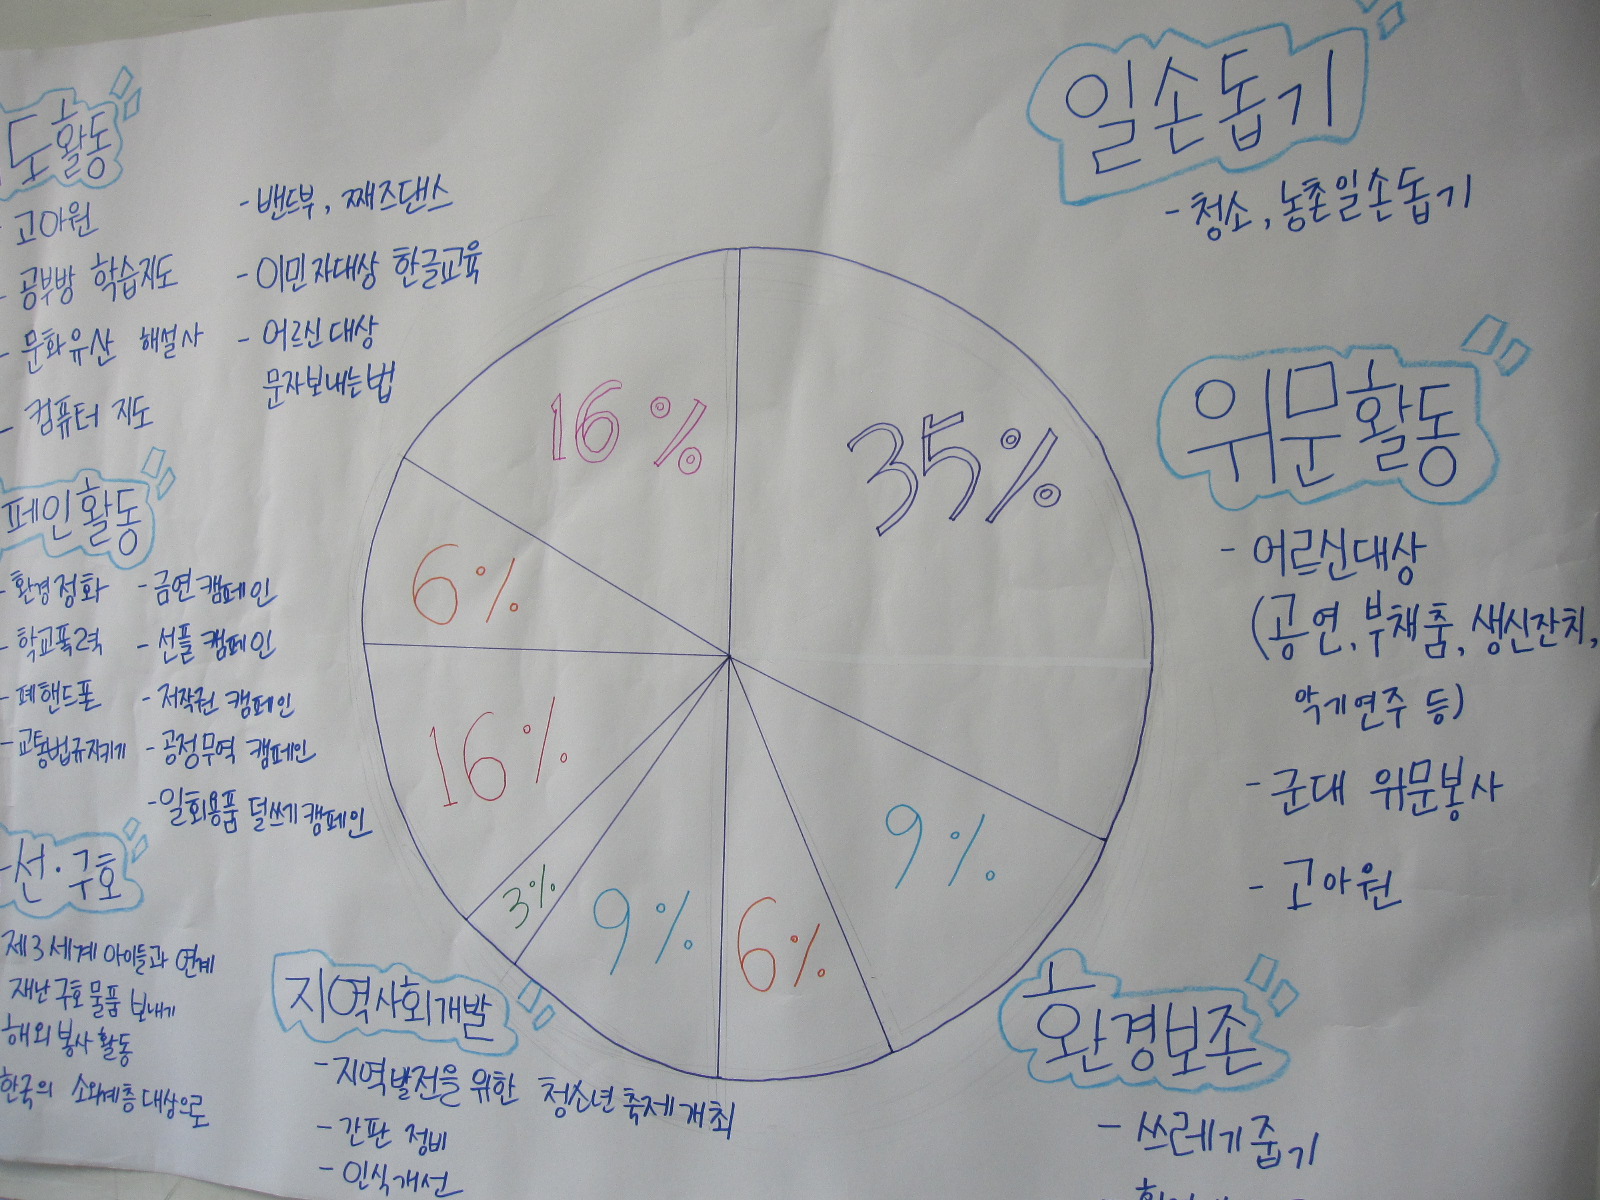 도활동
- 고아원
- 공부방 학습지도
- 문화유산 해설사
- 컴퓨터 지도
- 밴드부, 째즈댄스
- 이민자대상 한글교육
- 어르신 대상
문자보내는법
페인활동
- 환경정화
- 학교폭력
- 폐핸드폰
- 교통법규지키기
- 금연캠페인
- 선플 캠페인
- 저작권 캠페인
- 공정무역 캠페인
- 일회용품 덜쓰기캠페인
선·구호
제3세계 아이들과 연계
재난구호물품 보내기
해외봉사활동
한국의 소외계층대상으로
지역사회개발
- 지역발전을 위한 청소년축제개최
- 간판 정비
- 인식개선
16%
35%
6%
16%
3%
9%
6%
9%
일손돕기
- 청소, 농촌일손돕기
위문활동
- 어르신대상
(공연, 부채춤, 생신잔치,
악기연주 등)
- 군대 위문봉사
- 고아원
환경보존
- 쓰레기줍기